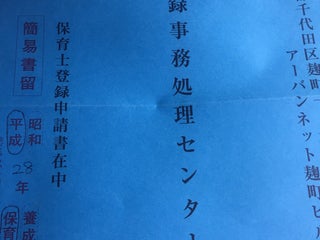 千代田区麹町
アーバンネット麹町ビル
録事務処理センター
保育士登録申請書在中
簡易書留
昭和
平成
28年
養成
保育